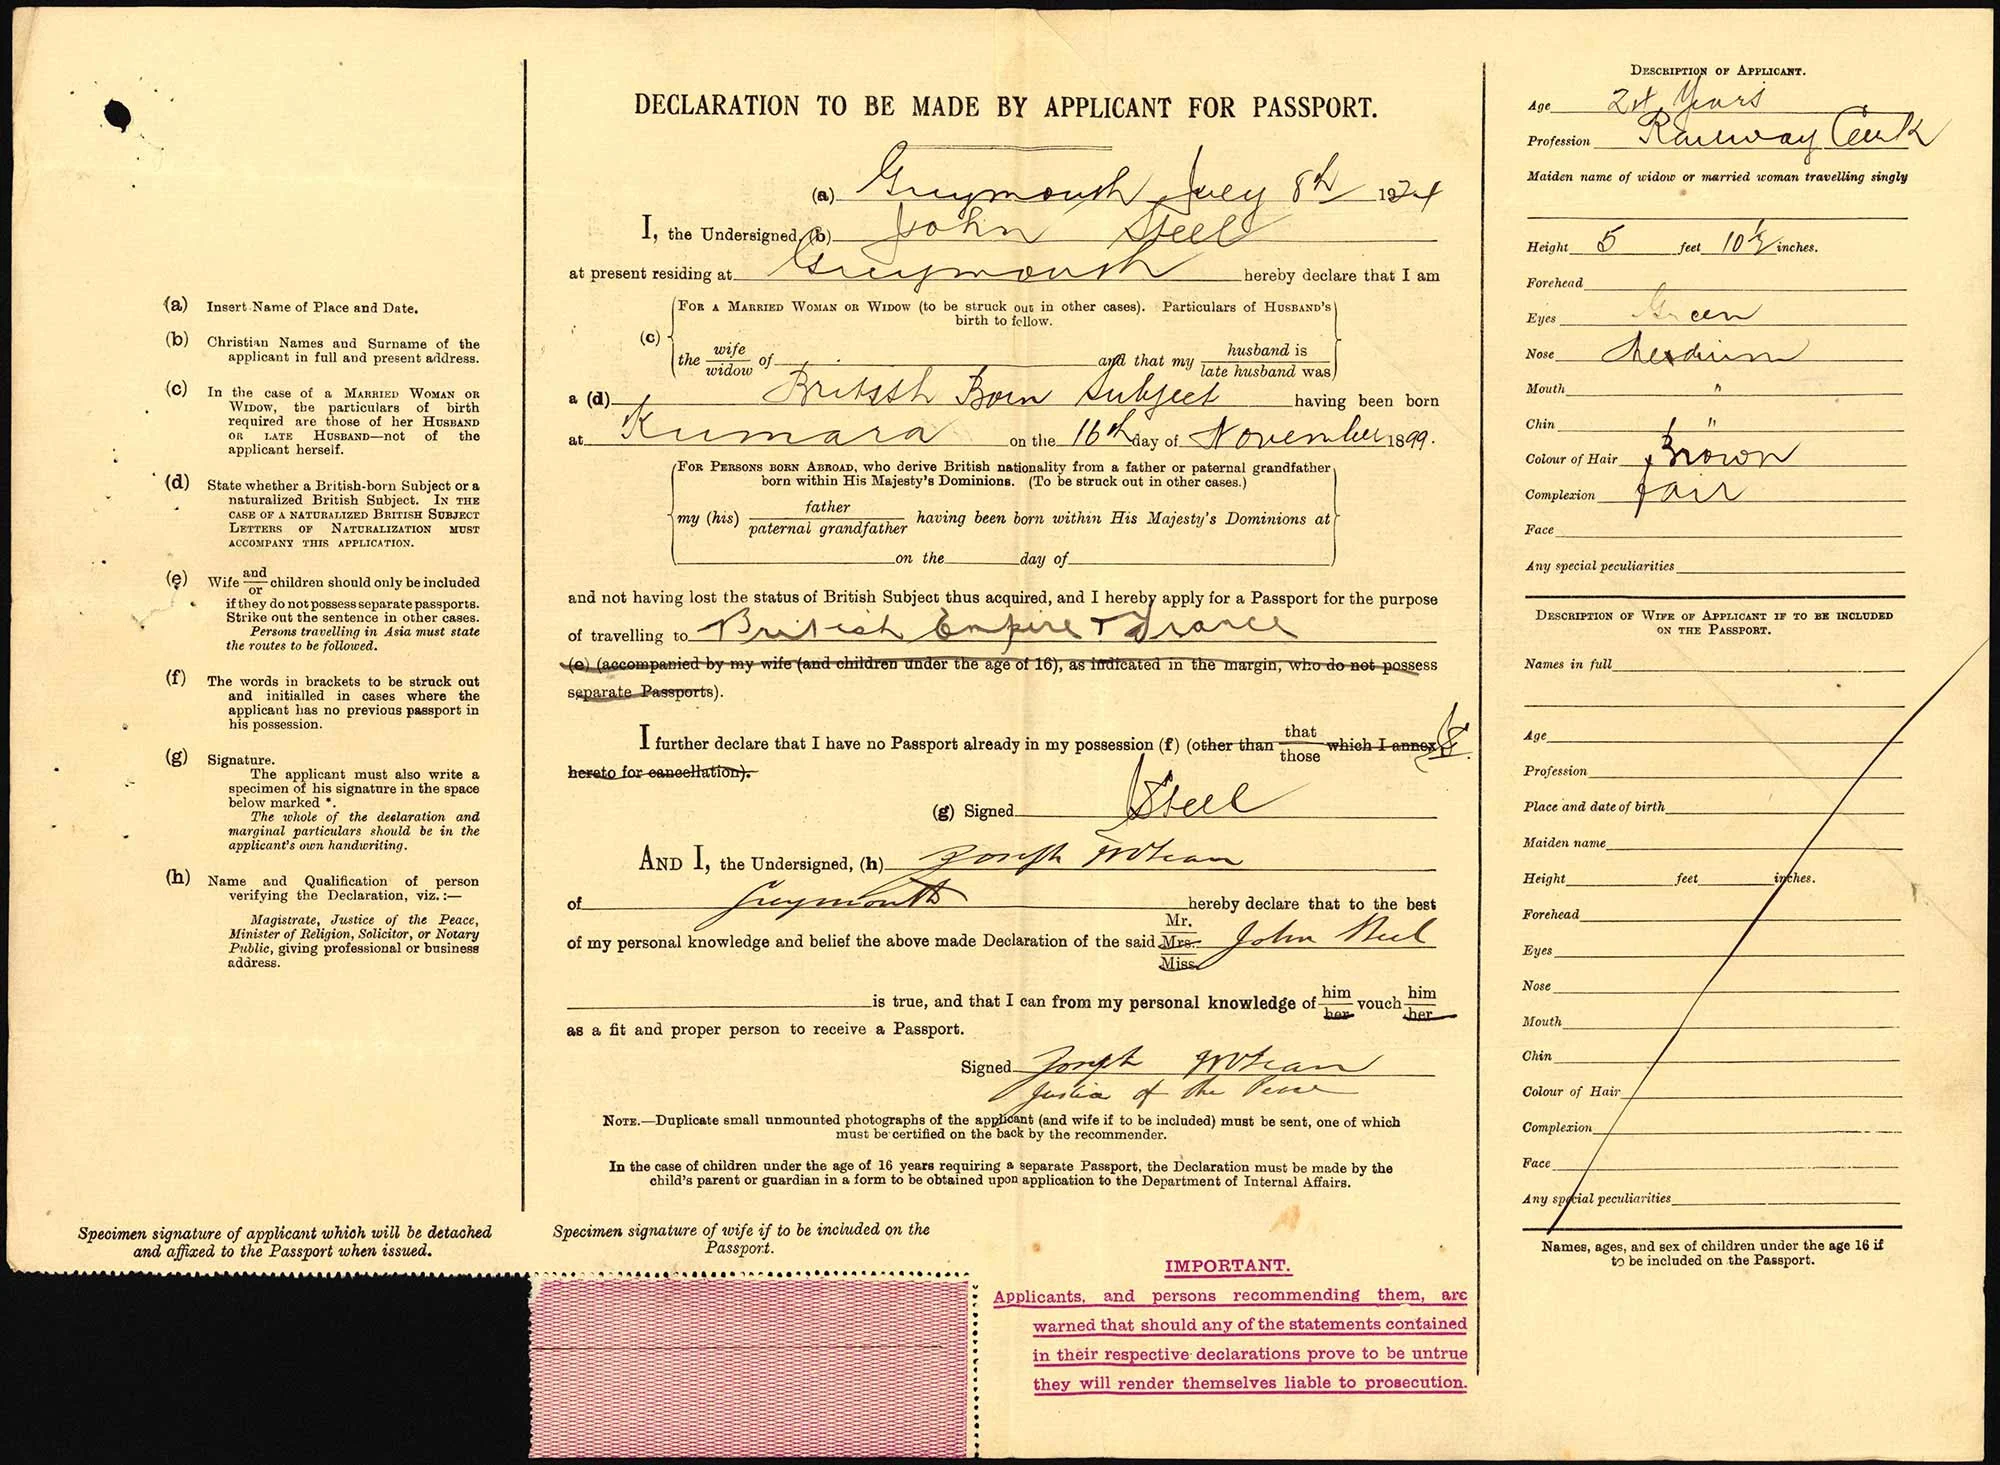 (a) Insert Name of Place and Date.
(b) Christian Names and Surname of the
applicant in full and present address.
(c) In the case of a MARRIED WOMAN OR
WIDOW, the particulars of birth
required are those of her HUSBAND
OR LATE HUSBAND—not of the
applicant herself.
(d) State whether a British-born Subject or a
naturalized British Subject. IN THE
CASE OF A NATURALIZED BRITISH SUBJECT
LETTERS OF NATURALIZATION MUST
ACCOMPANY THIS APPLICATION.
(e) Wife and/or children should only be included
if they do not possess separate passports.
Strike out the sentence in other cases.
Persons travelling in Asia must state
the routes to be followed.
(f) The words in brackets to be struck out
and initialled in cases where the
applicant has no previous passport in
his possession.
(g) Signature.
The applicant must also write a
specimen of his signature in the space
below marked *.
The whole of the declaration and
marginal particulars should be in the
applicant's own handwriting.
(h) Name and Qualification of person
verifying the Declaration, viz.:—
Magistrate, Justice of the Peace,
Minister of Religion, Solicitor, or Notary
Public, giving professional or business
address.
Specimen signature of applicant which will be detached
and affixed to the Passport when issued.
DECLARATION TO BE MADE BY APPLICANT FOR PASSPORT.
(a) Greymouth July 8th 1924
I, the Undersigned, (b) John Steel
at present residing at Greymouth hereby declare that I am
FOR A MARRIED WOMAN OR WIDOW (to be struck out in other cases). Particulars of HUSBAND'S
birth to follow.
(c) the wife/widow of and that my husband is/late husband was
a (d) British Born Subject having been born
at Kumara on the 16th day of November 1899.
FOR PERSONS BORN ABROAD, who derive British nationality from a father or paternal grandfather
born within His Majesty's Dominions. (To be struck out in other cases.)
my (his) father/paternal grandfather having been born within His Majesty's Dominions at
on the day of
and not having lost the status of British Subject thus acquired, and I hereby apply for a Passport for the purpose
of travelling to British Empire + France
(e) (accompanied by my wife (and children under the age of 16), as indicated in the margin, who do not possess
separate Passports).
I further declare that I have no Passport already in my possession (f) (other than that/those which I annex JS
hereto for cancellation).
(g) Signed JSteel
AND I, the Undersigned, (h) Joseph
of Greymouth hereby declare that to the best
of my personal knowledge and belief the above made Declaration of the said Mr./Mrs./Miss John Steel
is true, and that I can from my personal knowledge of him/her vouch him/her
as a fit and proper person to receive a Passport.
Signed Joseph
Justice of the Peace
NOTE.—Duplicate small unmounted photographs of the applicant (and wife if to be included) must be sent, one of which
must be certified on the back by the recommender.
In the case of children under the age of 16 years requiring a separate Passport, the Declaration must be made by the
child's parent or guardian in a form to be obtained upon application to the Department of Internal Affairs.
Specimen signature of wife if to be included on the
Passport.
IMPORTANT.
Applicants, and persons recommending them, are
warned that should any of the statements contained
in their respective declarations prove to be untrue
they will render themselves liable to prosecution.
DESCRIPTION OF APPLICANT.
Age 24 Years
Profession Railway Clerk
Maiden name of widow or married woman travelling singly
Height 5 feet 10 1/2 inches.
Forehead
Eyes Green
Nose Medium
Mouth "
Chin "
Colour of Hair Brown
Complexion fair
Face
Any special peculiarities
DESCRIPTION OF WIFE OF APPLICANT IF TO BE INCLUDED
ON THE PASSPORT.
Names in full
Age
Profession
Place and date of birth
Maiden name
Height feet inches.
Forehead
Eyes
Nose
Mouth
Chin
Colour of Hair
Complexion
Face
Any special peculiarities
Names, ages, and sex of children under the age 16 if
to be included on the Passport.